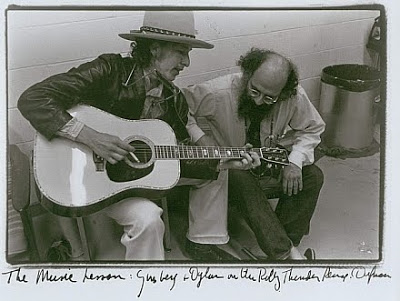 The Music Lesson: Ginsberg + Dylan on the Rolling Thunder Revue